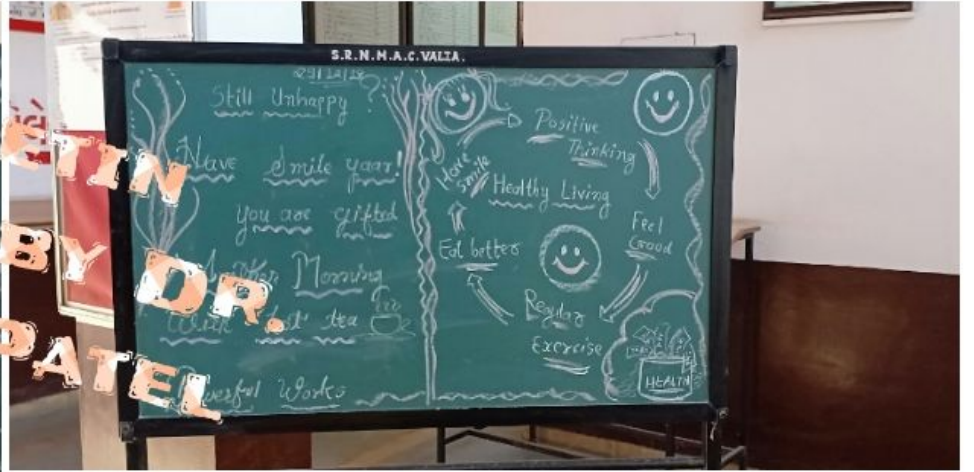 S.R.N.M.A.C. VALIA.
Still Unhappy ?
Have Smile yaar!
you are gifted
Another Morning
With hot tea
Powerful Works
Have Smile
Positive
Thinking
Healthy Living
Feel
Good
Eat better
Regular
Exercise
HEALTH
BY DR.